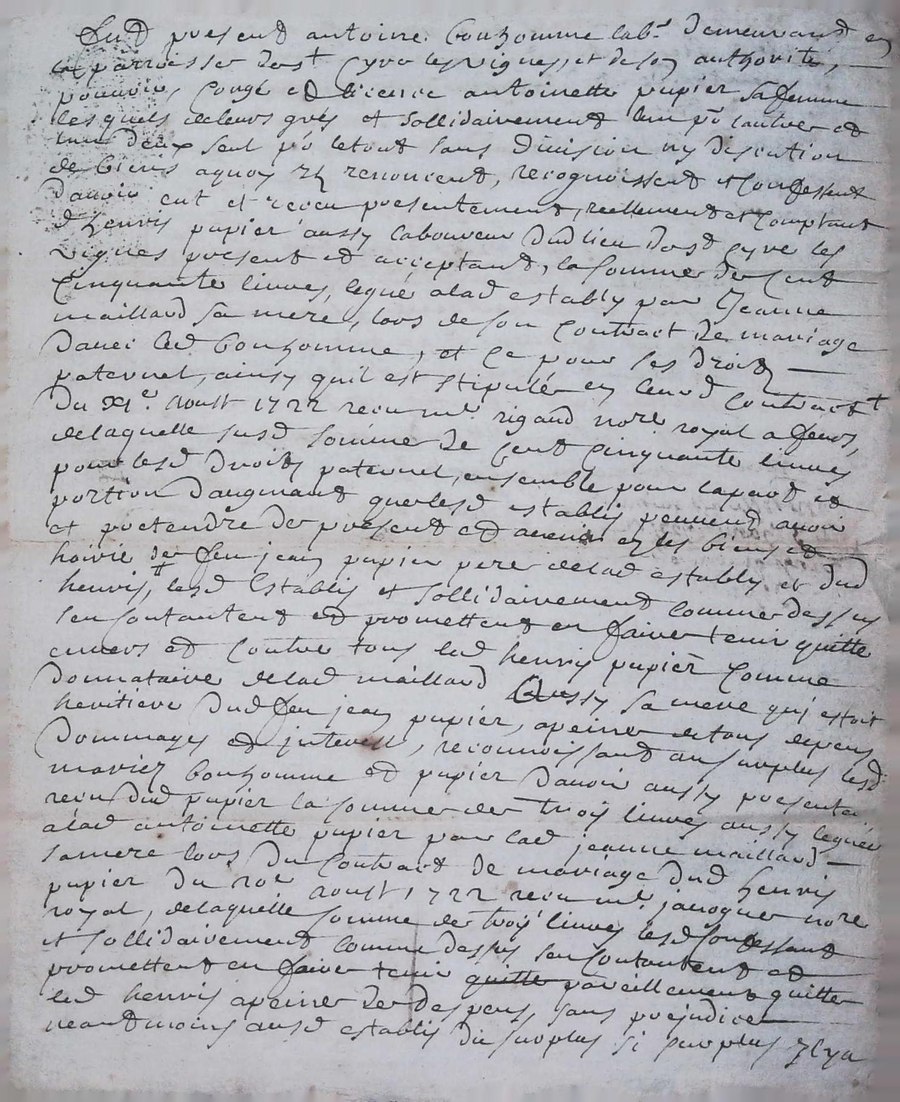 Fut present antoine Bonhomme lab.r demeurand en
la parroisse de s.t Cyre les vignes, et de son authorité,
pouvoir, Congé et licence antoinette papier sa femme
lesquels de leurs grés et sollidairement l'un po l'autre et
l'un deux seul po le tout sans division ny discution
de biens aquoy ils renoncent, recognoissent et Confessent
d'avoir eut et receu presentement, reellement et Comptant
d'henris papier aussy laboureur dud lieu de s.t Cyre les
vignes present et acceptant, la somme de Cent
Cinquante livres, legué alad establÿ par Jeanne
maillard sa mere, lors de son Contract de mariage
Davec led bonhomme, et Ce pour les droits
paternel, ainsy quil est stipulé en leurd Contract
Du XI.e Aoust 1722 receu m.e rigaud no.re royal a feurs,
delaquelle susd somme de Cent Cinquante livres
pour lesd Droits paternel, ensemble pour la part et
portion d'augmand que lesd establis peuvent avoir
et pretendre de present et advenir ez les biens et
hoirie de feu jean papier pere delad establÿ et dud
henris, lesd Establis et sollidairement comme dessus
sen Contantent et promettent en faire tenir quitte
envers et Contre tous led henris papier Comme
Donnataire delad maillard Aussy sa mere qui estoit
heritiere Dud feu jean papier, apeine de tous depens
Dommages et interest, reconnoissant au surplus lesd
mariez bonhomme et papier D'avoir aussy presente.t
receu Dud papier la somme de trois livres aussy leguée
alad antoinette papier par lad jeanne maillard
sa mere lors du Contract de mariage dud henris
papier du 20e Aoust 1722 receu m.e jacoquer no.re
royal, delaquelle somme de trois livres lesd Confessant
et sollidairement comme dessus sen Contantent et
promettent en faire tenir quitte pareillement quitte
led henris apeine de despens, sans prejudice
neantmoins ausd establis du surplus si surplus y a